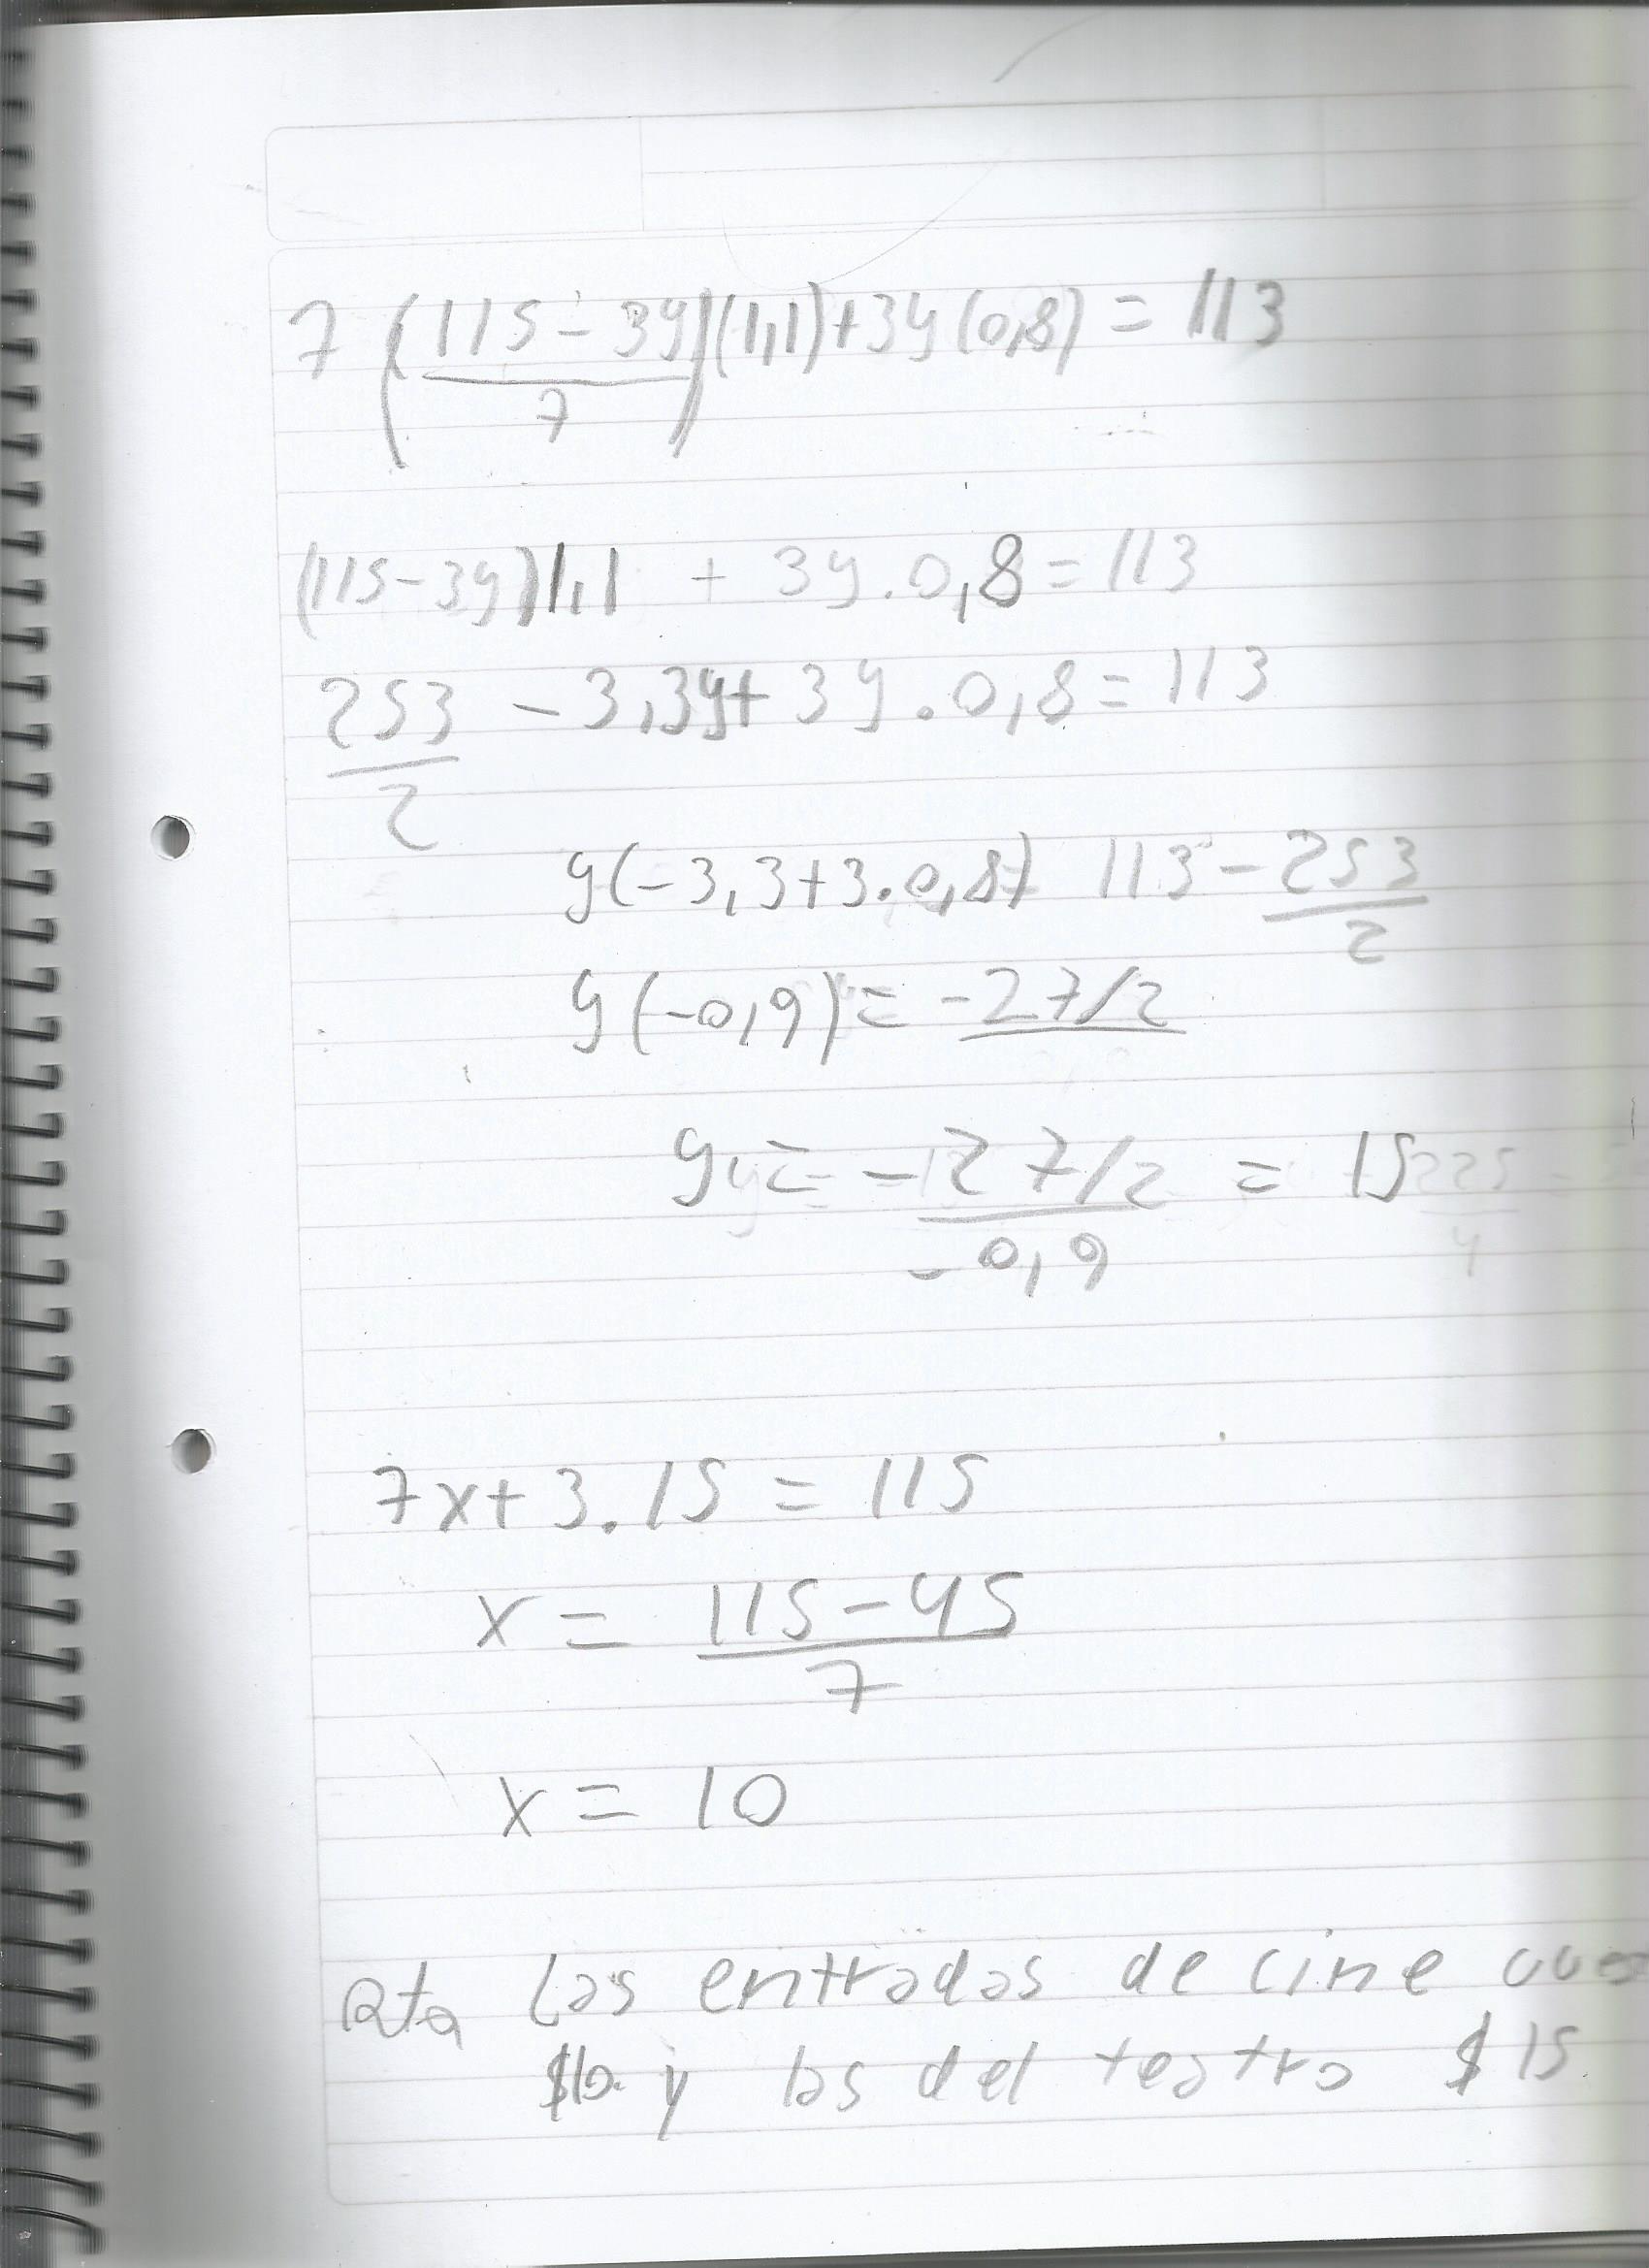 7 (115 - 3y / 7) (1,1) + 3y (0,8) = 113
(115 - 3y) 1,1 + 3y . 0,8 = 113
253/2 - 3,3y + 3y . 0,8 = 113
y (-3,3 + 3 . 0,8) 113 - 253/2
y (-0,9) = -27/2
y = -27/2 / -0,9 = 15
7x + 3 . 15 = 115
x = 115 - 45 / 7
x = 10
Rta Las entradas de cine
$10 y las del teatro $15